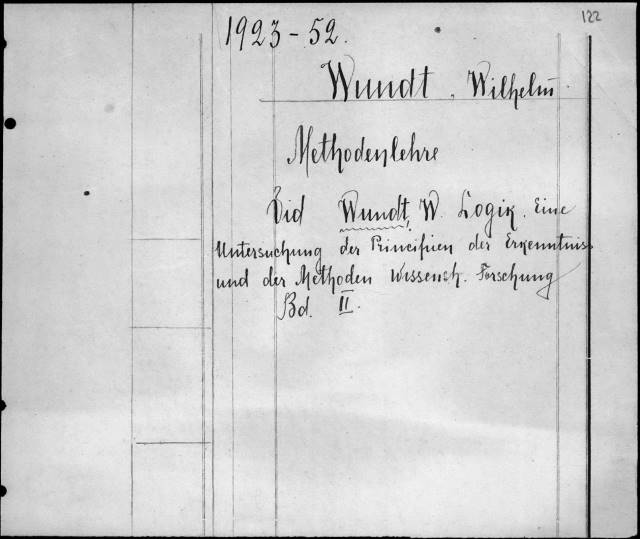 122
1923-52.
Wundt, Wilhelm
Methodenlehre
Vid Wundt, W. Logik. Eine
Untersuchung der Principien der Erkenntniss
und der Methoden Wissensch. Forschung
Bd. II.